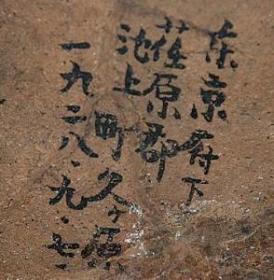 东京府下
荏原郡
池上町久ヶ原
一九二八・九・七・